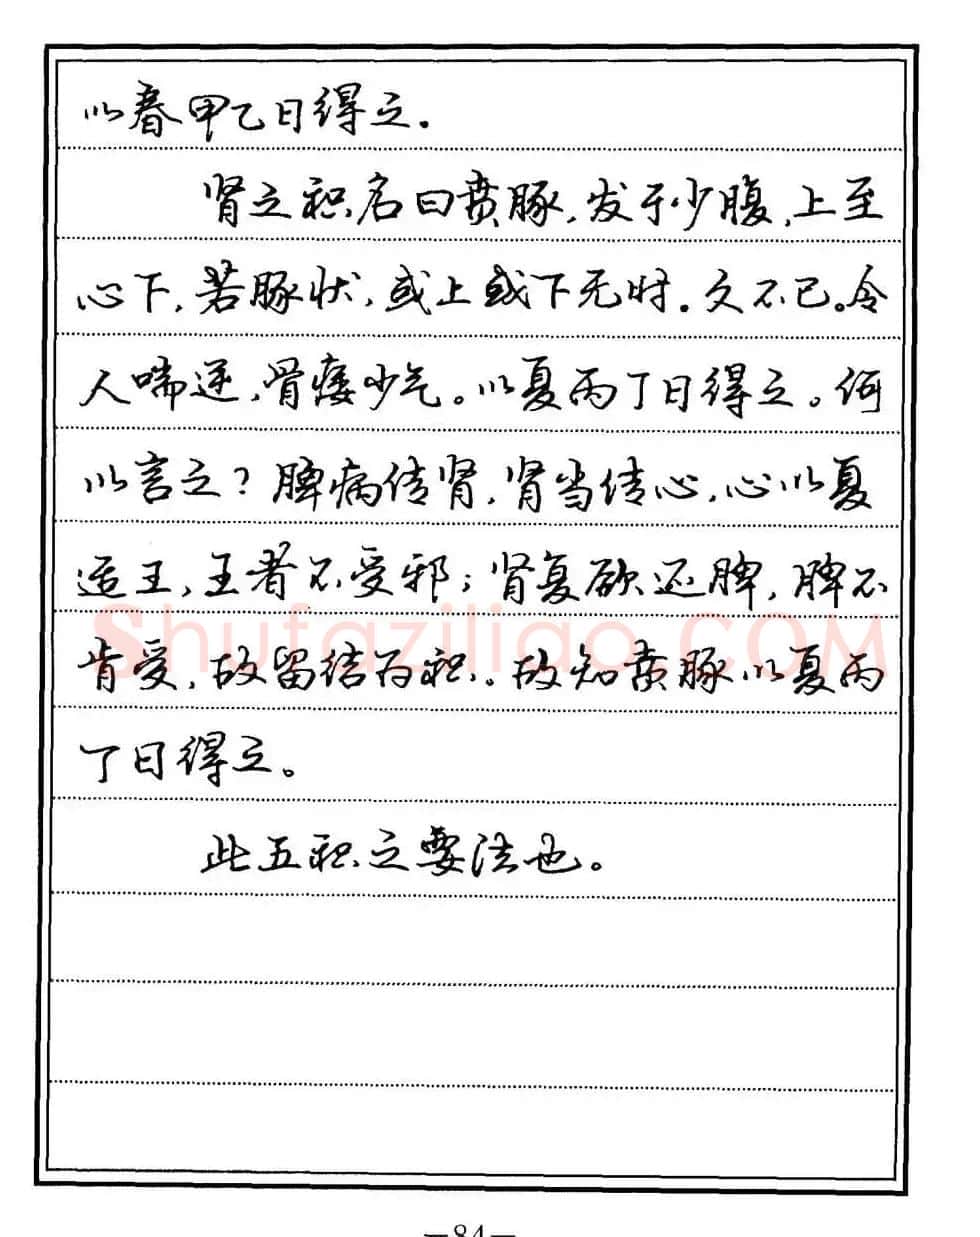 以春甲乙日得之.
肾之积,名曰贲豚,发于少腹,上至
心下,若豚状,或上或下无时.久不已。令
人喘逆,骨痿少气。以夏丙丁日得之。何
以言之?脾病传肾,肾当传心,心以夏
适王,王者不受邪;肾复欲还脾,脾不
肯受,故留结为积。故知贲豚以夏丙
丁日得之。
此五积之要法也。
Shufaziliao.COM
—84—